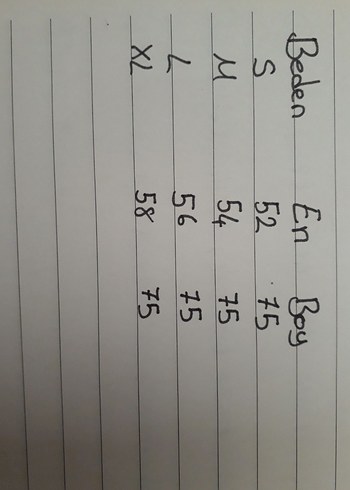 Beden En Boy
S 52 75
M 54 75
L 56 75
XL 58 75